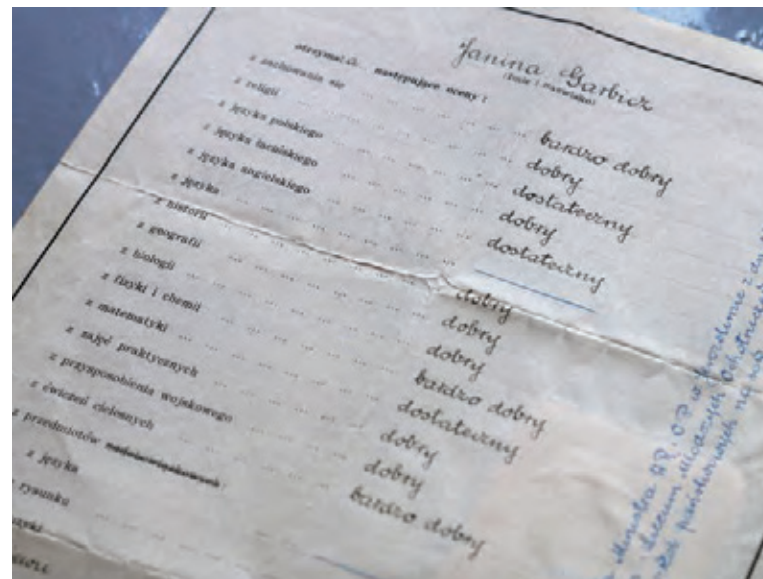 Janina Garbicz
(imię i nazwisko)
otrzymała następujące oceny:
z zachowania się ... bardzo dobry
z religii ... dobry
z języka polskiego ... dostateczny
z języka łacińskiego ... dobry
z języka angielskiego ... dostateczny
z języka ...
z historii ... dobry
z geografii ... dobry
z biologii ... dobry
z fizyki i chemii ... bardzo dobry
z matematyki ... dostateczny
z zajęć praktycznych ... dobry
z przysposobienia wojskowego ... dobry
z ćwiczeń cielesnych ... bardzo dobry
z przedmiotów nadobowiązkowych:
z języka
rysunku